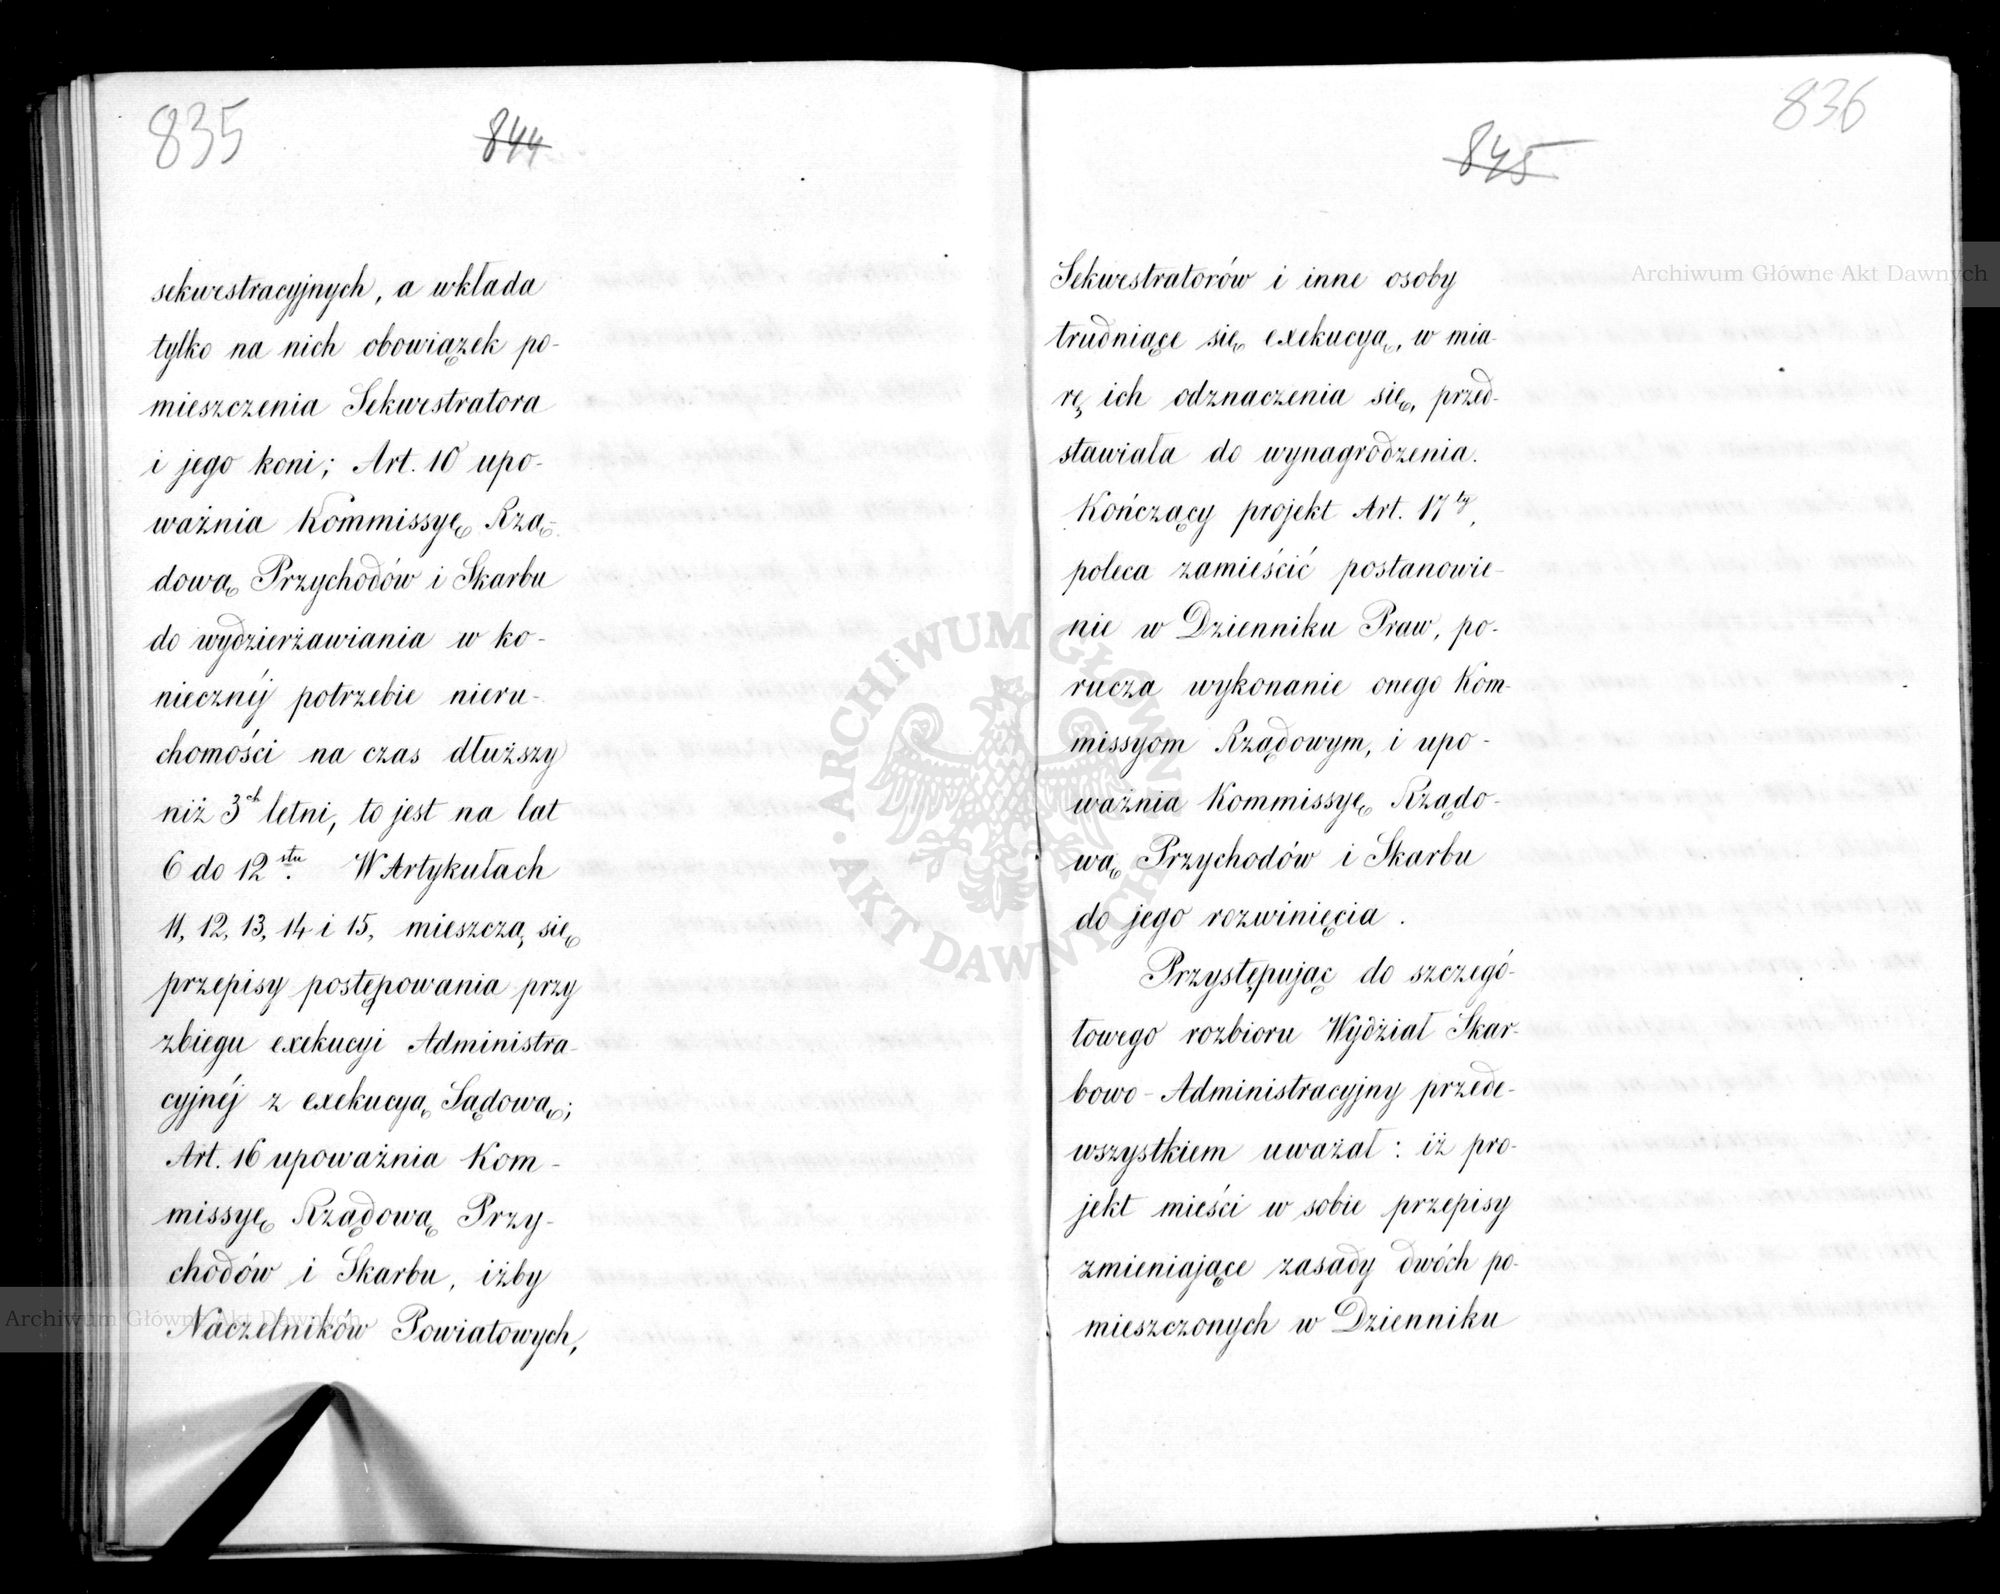 835
844
sekwestracyjnych, a wkłada
tylko na nich obowiązek po-
mieszczenia Sekwestratora
i jego koni; Art. 10 upo-
ważnia Kommissyę Rzą-
dową Przychodów i Skarbu
do wydzierżawiania w ko-
niecznéj potrzebie nieru-
chomości na czas dłuższy
niż 3ch letni, to jest na lat
6 do 12stu. W Artykułach
11, 12, 13, 14 i 15, mieszczą się
przepisy postępowania przy
zbiegu exekucyi Administra-
cyjnéj z exekucyą Sądową;
Art. 16 upoważnia Kom-
missyę Rządową Przy-
chodów i Skarbu, iżby
Naczelników Powiatowych,
836
845
Sekwestratorów i inne osoby
trudniące się exekucyą, w mia-
rę ich odznaczenia się, przed-
stawiała do wynagrodzenia.
Kończący projekt Art. 17ty,
poleca zamieścić postanowie-
nie w Dzienniku Praw, po-
rucza wykonanie onego Kom-
missyom Rządowym, i upo-
ważnia Kommissyę Rządo-
wą Przychodów i Skarbu
do jego rozwinięcia.
Przystępując do szczegó-
łowego rozbioru Wydział Skar-
bowo-Administracyjny przede-
wszystkiem uważał: iż pro-
jekt mieści w sobie przepisy
zmieniające zasady dwóch po-
mieszczonych w Dzienniku
Archiwum Główne Akt Dawnych
ARCHIWUM GŁÓWNE AKT DAWNYCH
Archiwum Główne Akt Dawnych